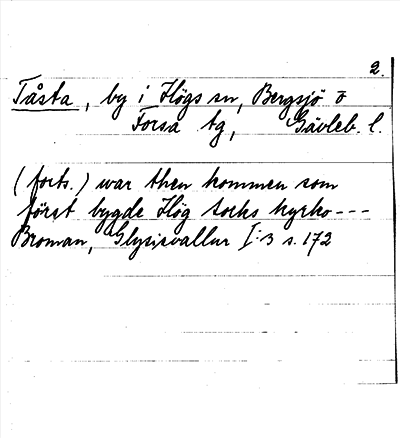 2.
Tåsta, by i Högs sn, Bergsjö o
Forsa tg, Gävleb. l.
(forts.) war then kommen som
först bygde Hög sochs kyrko---
Broman, Glysisvallur I:3 s. 172